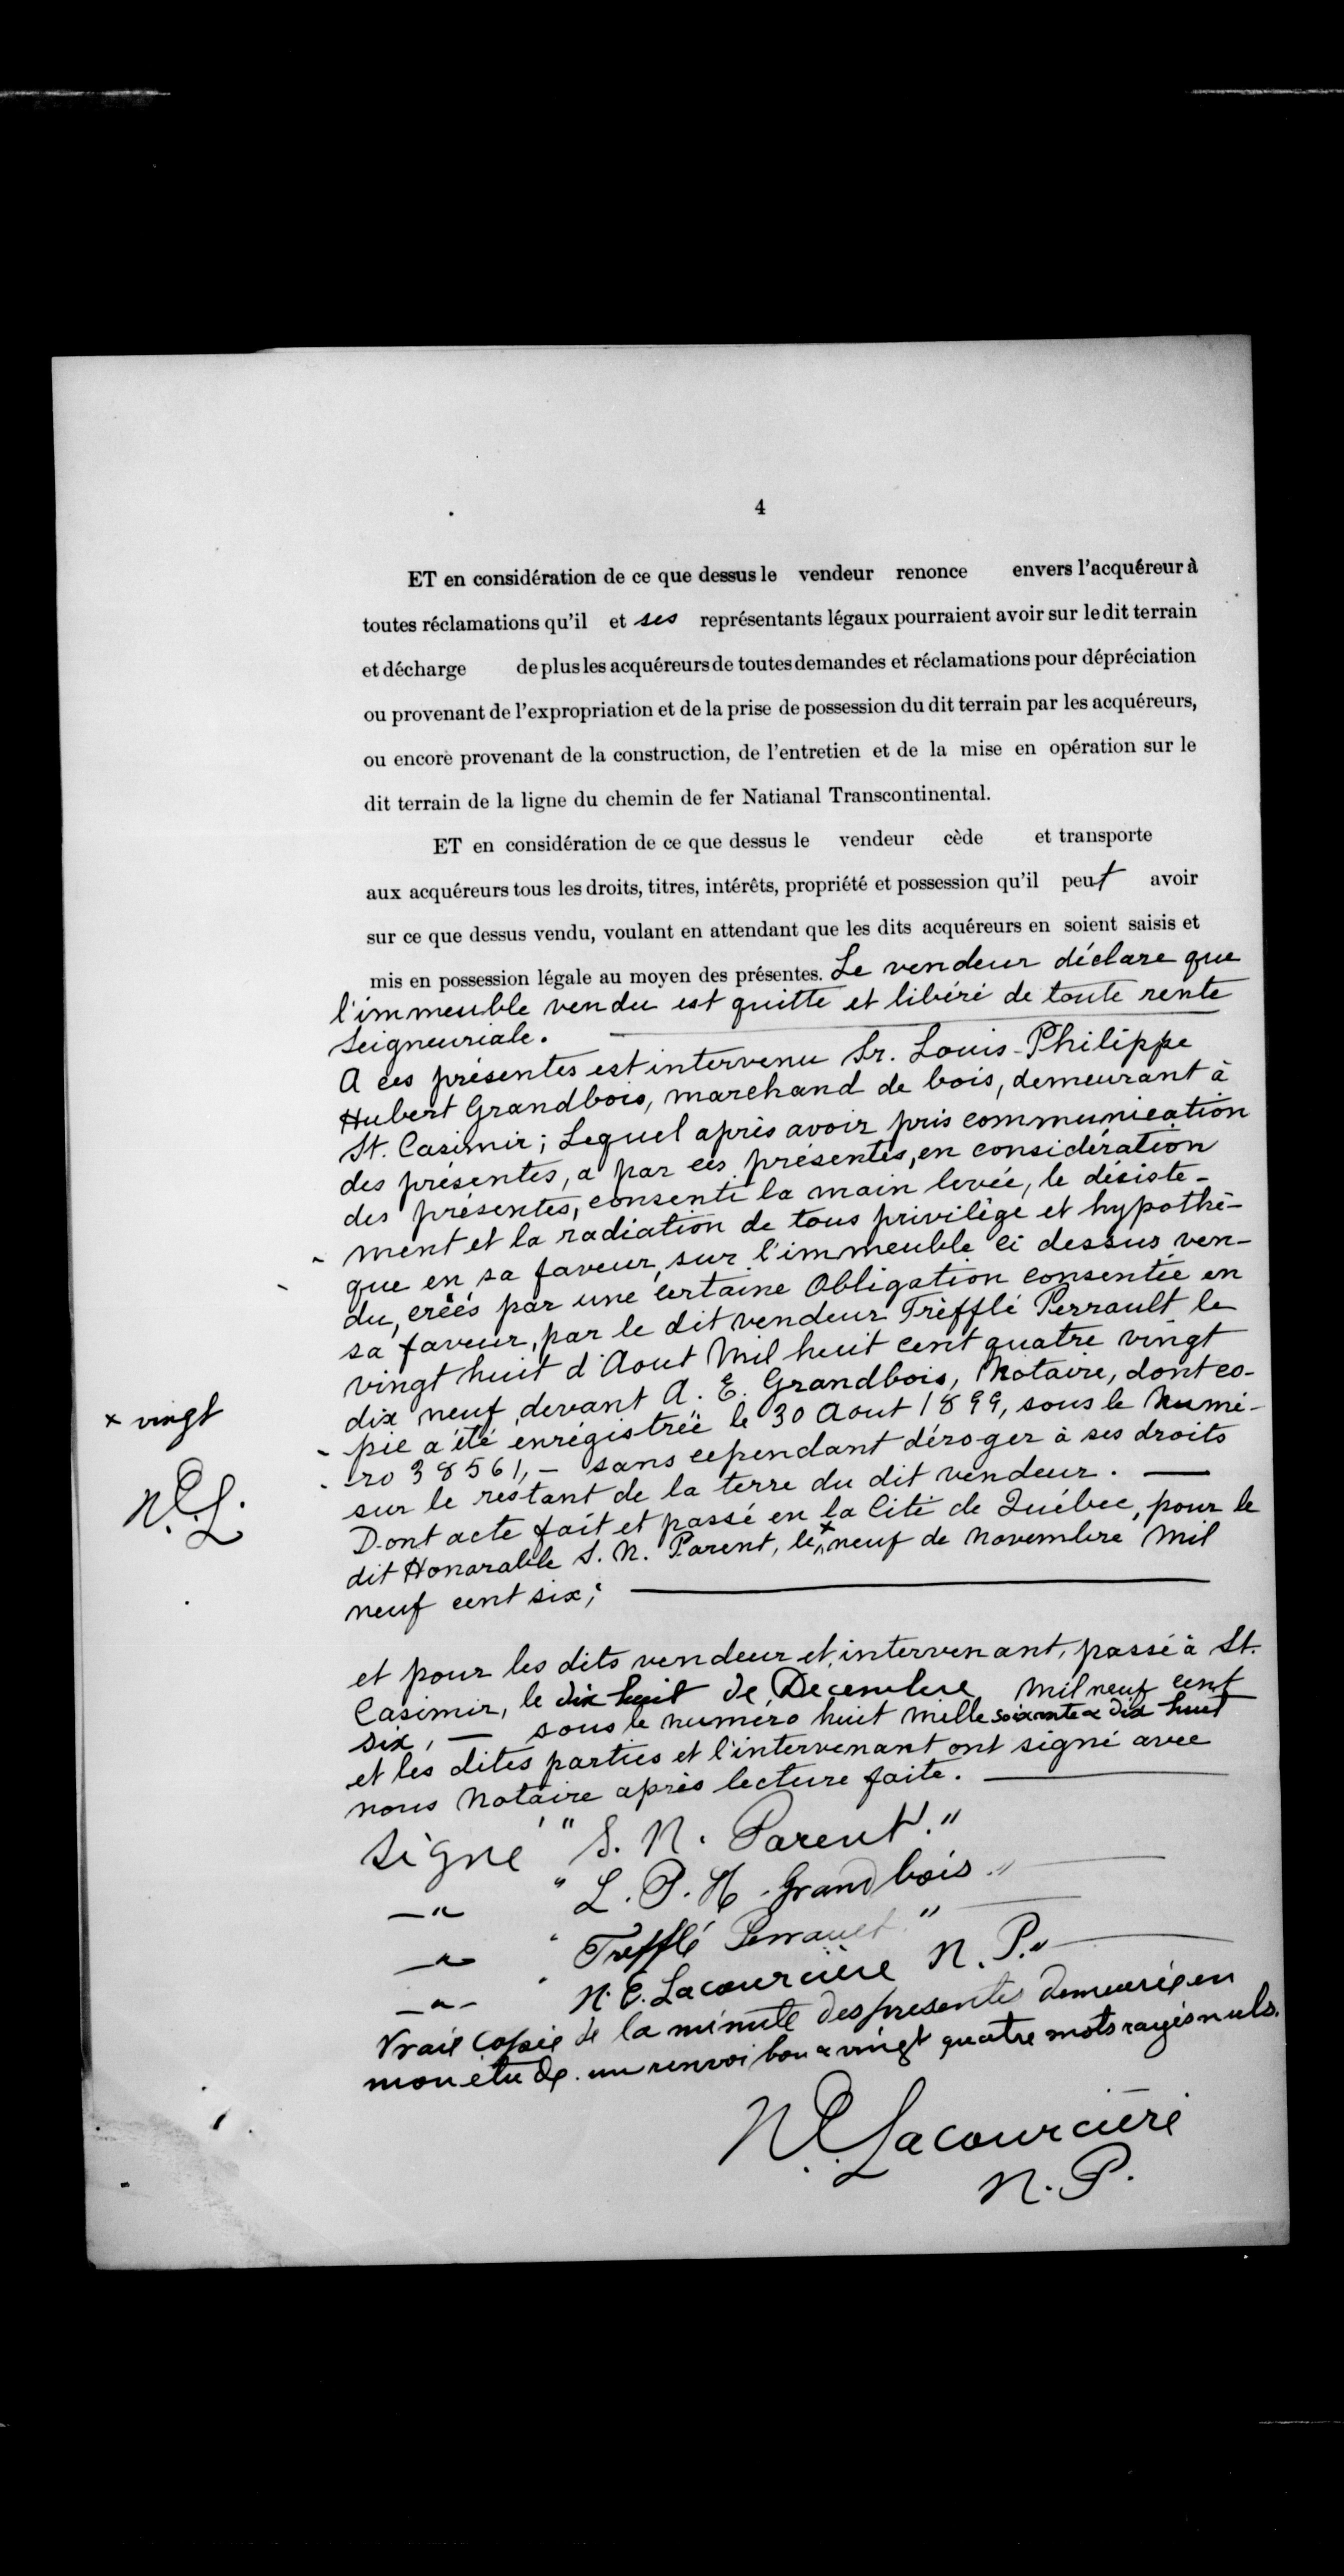 4
ET en considération de ce que dessus le vendeur renonce envers l'acquéreur à
toutes réclamations qu'il et ses représentants légaux pourraient avoir sur le dit terrain
et décharge de plus les acquéreurs de toutes demandes et réclamations pour dépréciation
ou provenant de l'expropriation et de la prise de possession du dit terrain par les acquéreurs,
ou encore provenant de la construction, de l'entretien et de la mise en opération sur le
dit terrain de la ligne du chemin de fer Natianal Transcontinental.
ET en considération de ce que dessus le vendeur cède et transporte
aux acquéreurs tous les droits, titres, intérêts, propriété et possession qu'il peut avoir
sur ce que dessus vendu, voulant en attendant que les dits acquéreurs en soient saisis et
mis en possession légale au moyen des présentes. Le vendeur déclare que
l'immeuble vendu est quitte et libéré de toute rente
Seigneuriale.
A ces présentes est intervenu Sr. Louis-Philippe
Hubert Grandbois, marchand de bois, demeurant à
St. Casimir; Lequel après avoir pris communication
des présentes, a par ces présentes, en considération
des présentes, consenti la main levée, le désiste-
ment et la radiation de tous privilège et hypothè-
que en sa faveur, sur l'immeuble ci dessus ven-
du, créés par une certaine Obligation consentie en
sa faveur, par le dit vendeur Trèfflé Perrault le
vingt huit d'Aout Mil huit cent quatre vingt
dix neuf, devant A. E. Grandbois, Notaire, dont co-
pie a été enrégistrée le 30 Aout 1899, sous le Numé-
ro 38561, - sans cependant déroger à ses droits
sur le restant de la terre du dit vendeur. —
Dont acte fait et passé en la Cité de Québec, pour le
dit Honarable S. N. Parent, le x neuf de Novembre Mil
neuf cent six;
x vingt
N.E.L.
et pour les dits vendeur et intervenant, passé à St.
Casimir, le dix huit de Decembre Mil neuf cent
six, — sous le numéro huit mille soixante & dix huit
et les dites parties et l'intervenant ont signé avec
nous Notaire après lecture faite.
Signé "S. N. Parent."
—"— "L. P. H. Grandbois"
—"— "Trefflé Perrault"
—"— "N. E. Lacourcière N. P."
Vraie copie de la minute des presentes demeurée en
mon étude. un renvoi bon & vingt quatre mots rayés nuls.
N.E. Lacourcière
N. P.